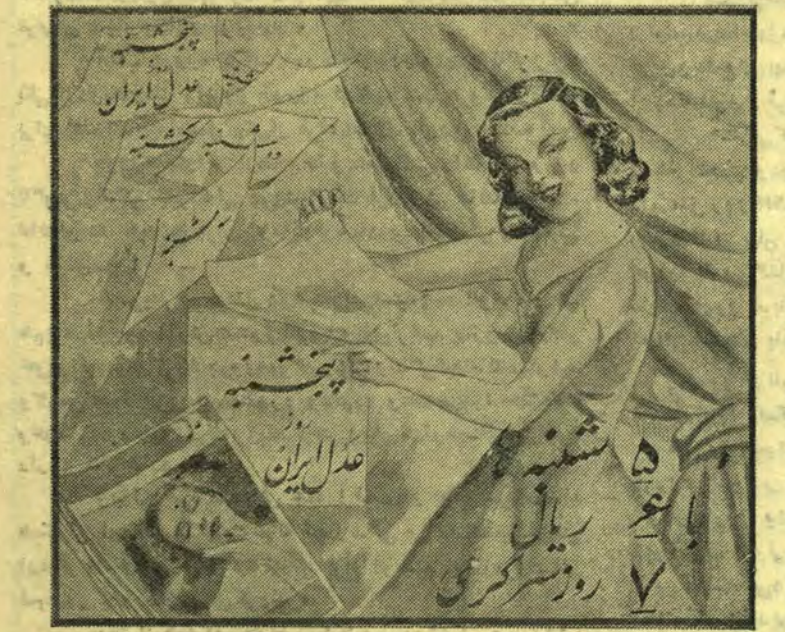 پنجشنبه
عدل ایران
دوشنبه یکشنبه
سه شنبه
پنجشنبه
روز
عدل ایران
۵ شنبه
با ۶ ریال
۷ روز سرگرمی